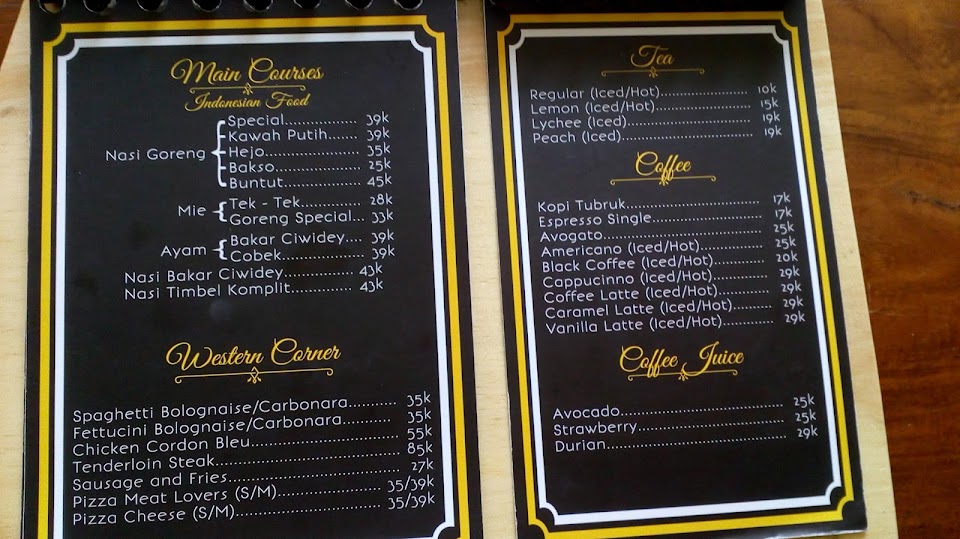 Main Courses
Indonesian Food
Special............... 39k
Kawah Putih....... 39k
Nasi Goreng Hejo..................... 35k
Bakso................... 25k
Buntut.................. 45k
Mie Tek - Tek.............. 28k
Goreng Special... 33k
Ayam Bakar Ciwidey.... 39k
Cobek................. 39k
Nasi Bakar Ciwidey............... 43k
Nasi Timbel Komplit.............. 43k
Western Corner
Spaghetti Bolognaise/Carbonara.......... 35k
Fettucini Bolognaise/Carbonara.......... 35k
Chicken Cordon Bleu............................... 55k
Tenderloin Steak...................................... 85k
Sausage and Fries................................... 27k
Pizza Meat Lovers (S/M)..................... 35/39k
Pizza Cheese (S/M).............................. 35/39k
Tea
Regular (Iced/Hot)................... 10k
Lemon (Iced/Hot).................... 15k
Lychee (Iced)........................... 19k
Peach (Iced)............................ 19k
Coffee
Kopi Tubruk............................. 17k
Espresso Single........................ 17k
Avogato.................................... 25k
Americano (Iced/Hot)............. 25k
Black Coffee (Iced/Hot).......... 20k
Cappucinno (Iced/Hot)........... 29k
Coffee Latte (Iced/Hot).......... 29k
Caramel Latte (Iced/Hot)........ 29k
Vanilla Latte (Iced/Hot).......... 29k
Coffee Juice
Avocado................................... 25k
Strawberry................................ 25k
Durian....................................... 29k